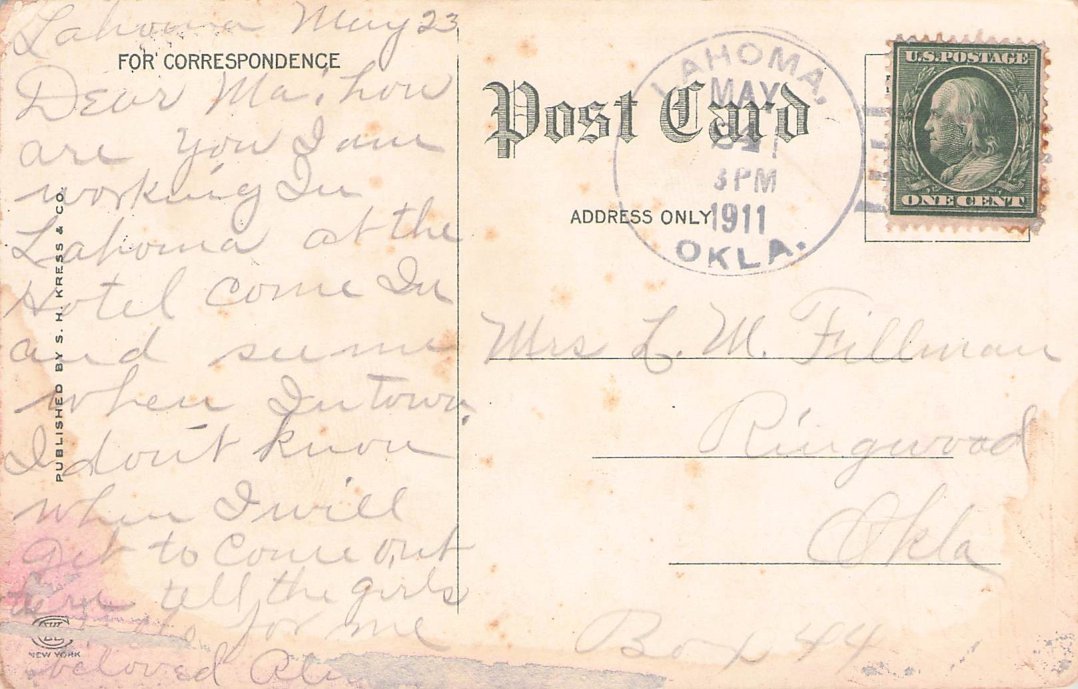 Lahoma May 23
FOR CORRESPONDENCE
Dear Ma, how
are you I am
working In
Lahoma at the
Hotel come In
and see me
when In town.
I don't know
when I will
get to come out
tell the girls
for me
beloved
PUBLISHED BY S. H. KRESS & CO.
NEW YORK
Post Card
ADDRESS ONLY
LAHOMA,
MAY
3PM
1911
OKLA.
U.S. POSTAGE
ONE CENT
Mrs L. M. Fillman
Ringwood
Okla
Box 44